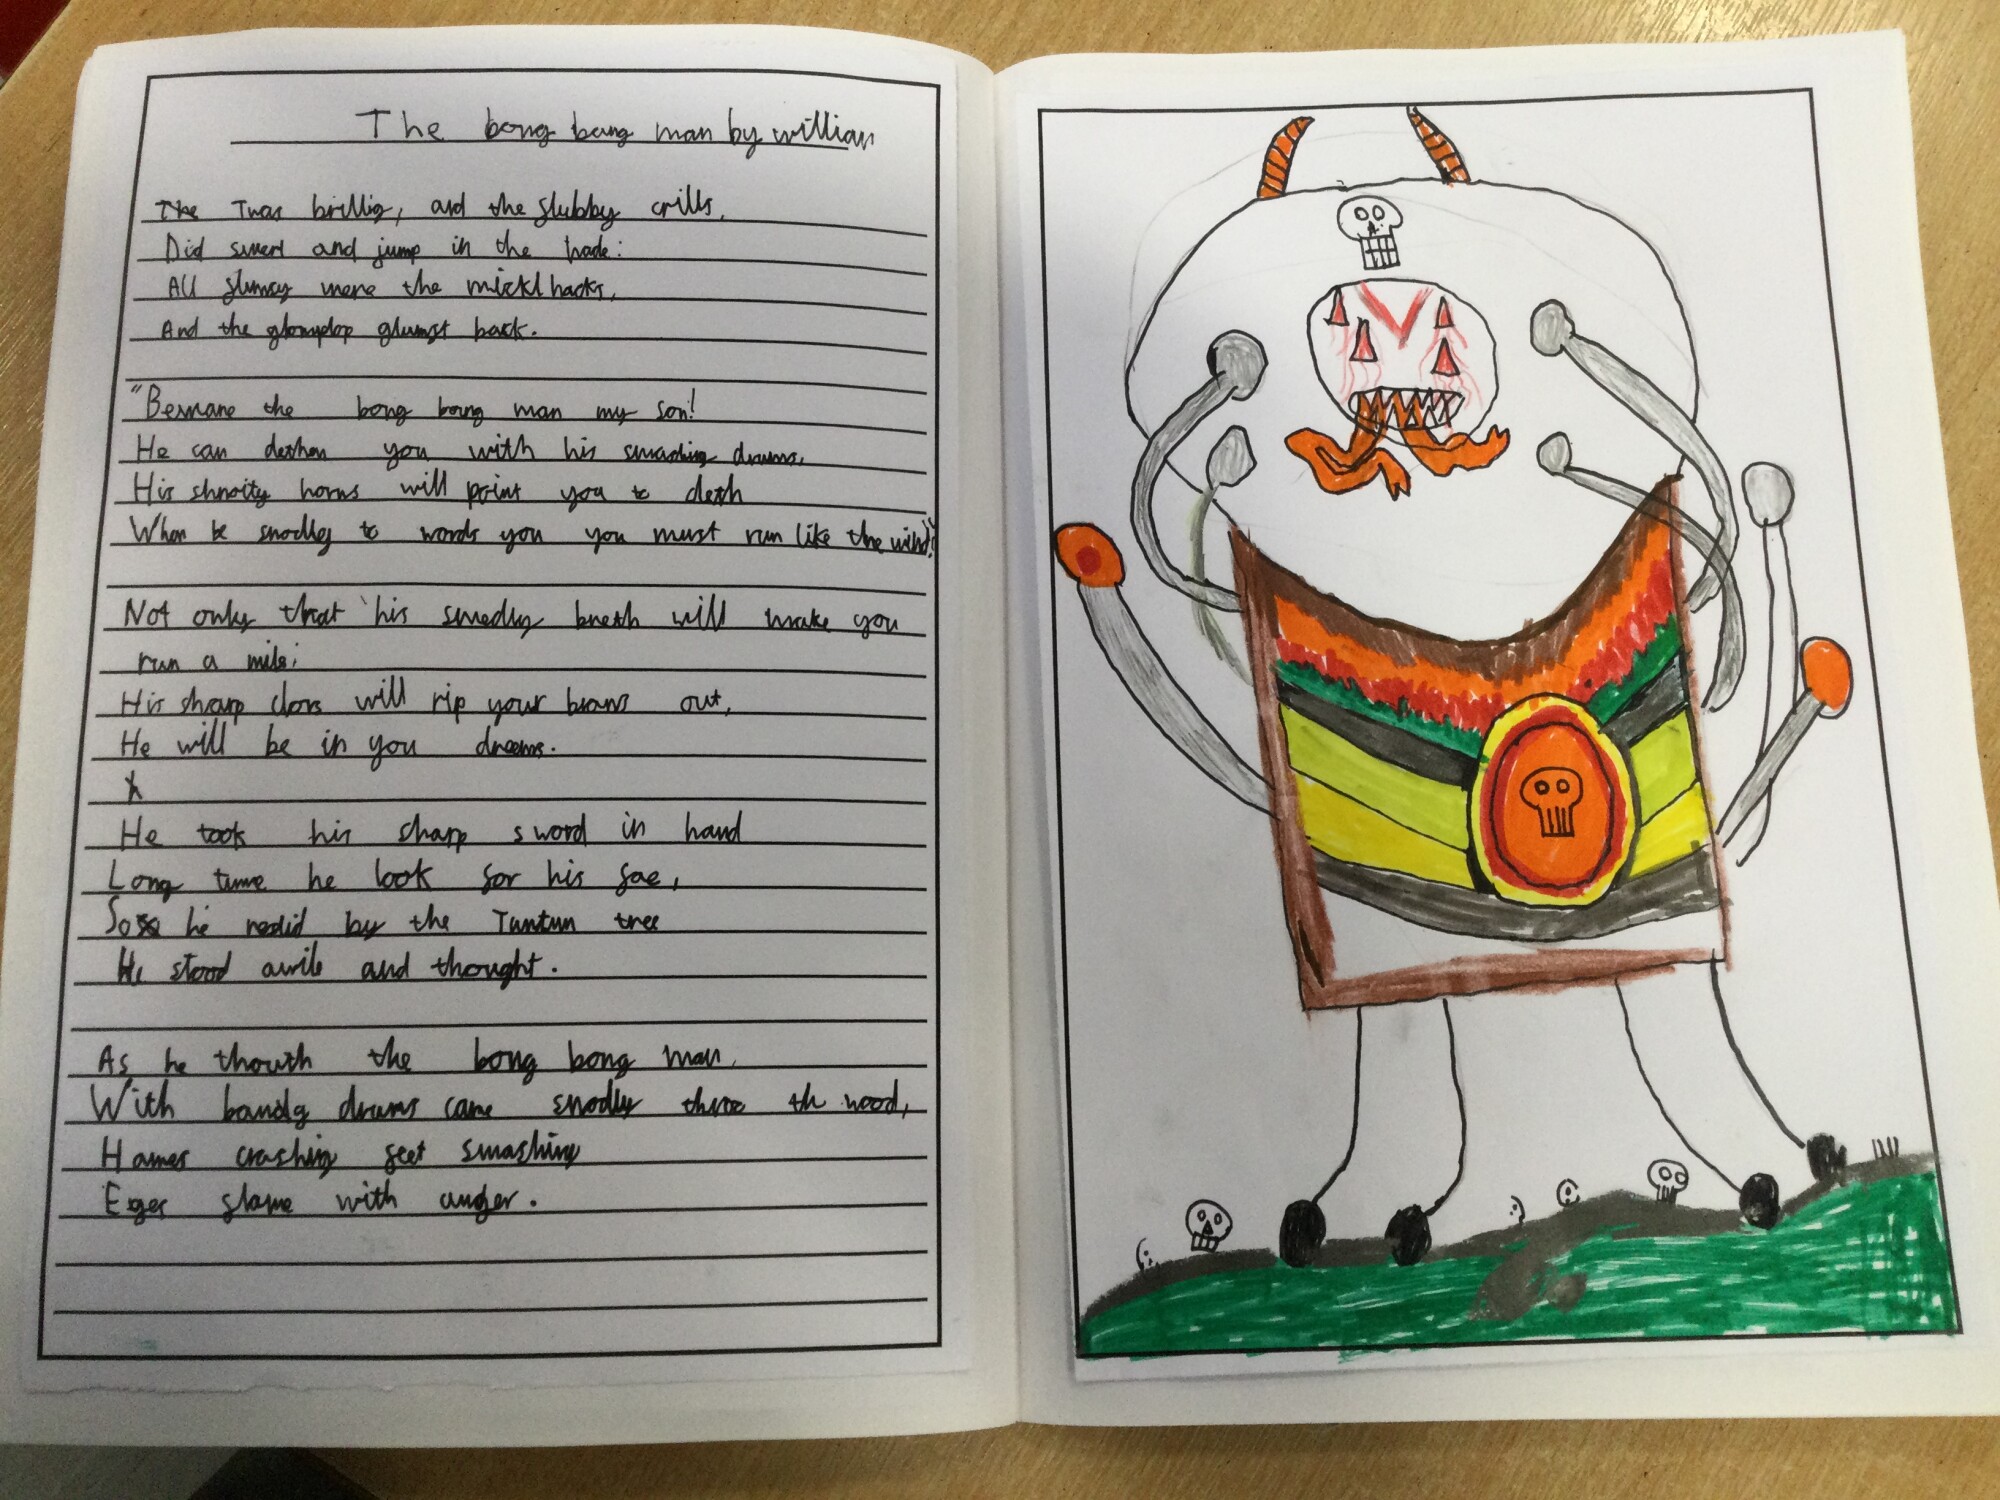 The bong bong man by william
The Twas brillig, and the slubby crills,
Did swerl and jump in the hade:
All slumsy were the mickl hacks,
And the glomydop glumst back.
"Beware the bong bong man my son!
He can dethen you with his smashing drums,
His shnoity horns will point you to deth
When he snodleg to words you you must run like the wind!"
Not only that his smedly breth will make you
run a mile;
His sharp clors will rip your brans out,
He will be in you dreems.
He took his sharp sword in hand
Long time he look for his foe,
So he restid by the Tuntun tree
He stood awile and thought.
As he thouth the bong bong man,
With bandg drums came snodly throo th wood,
Hames crashing feet smashing
Eyes flame with anger.